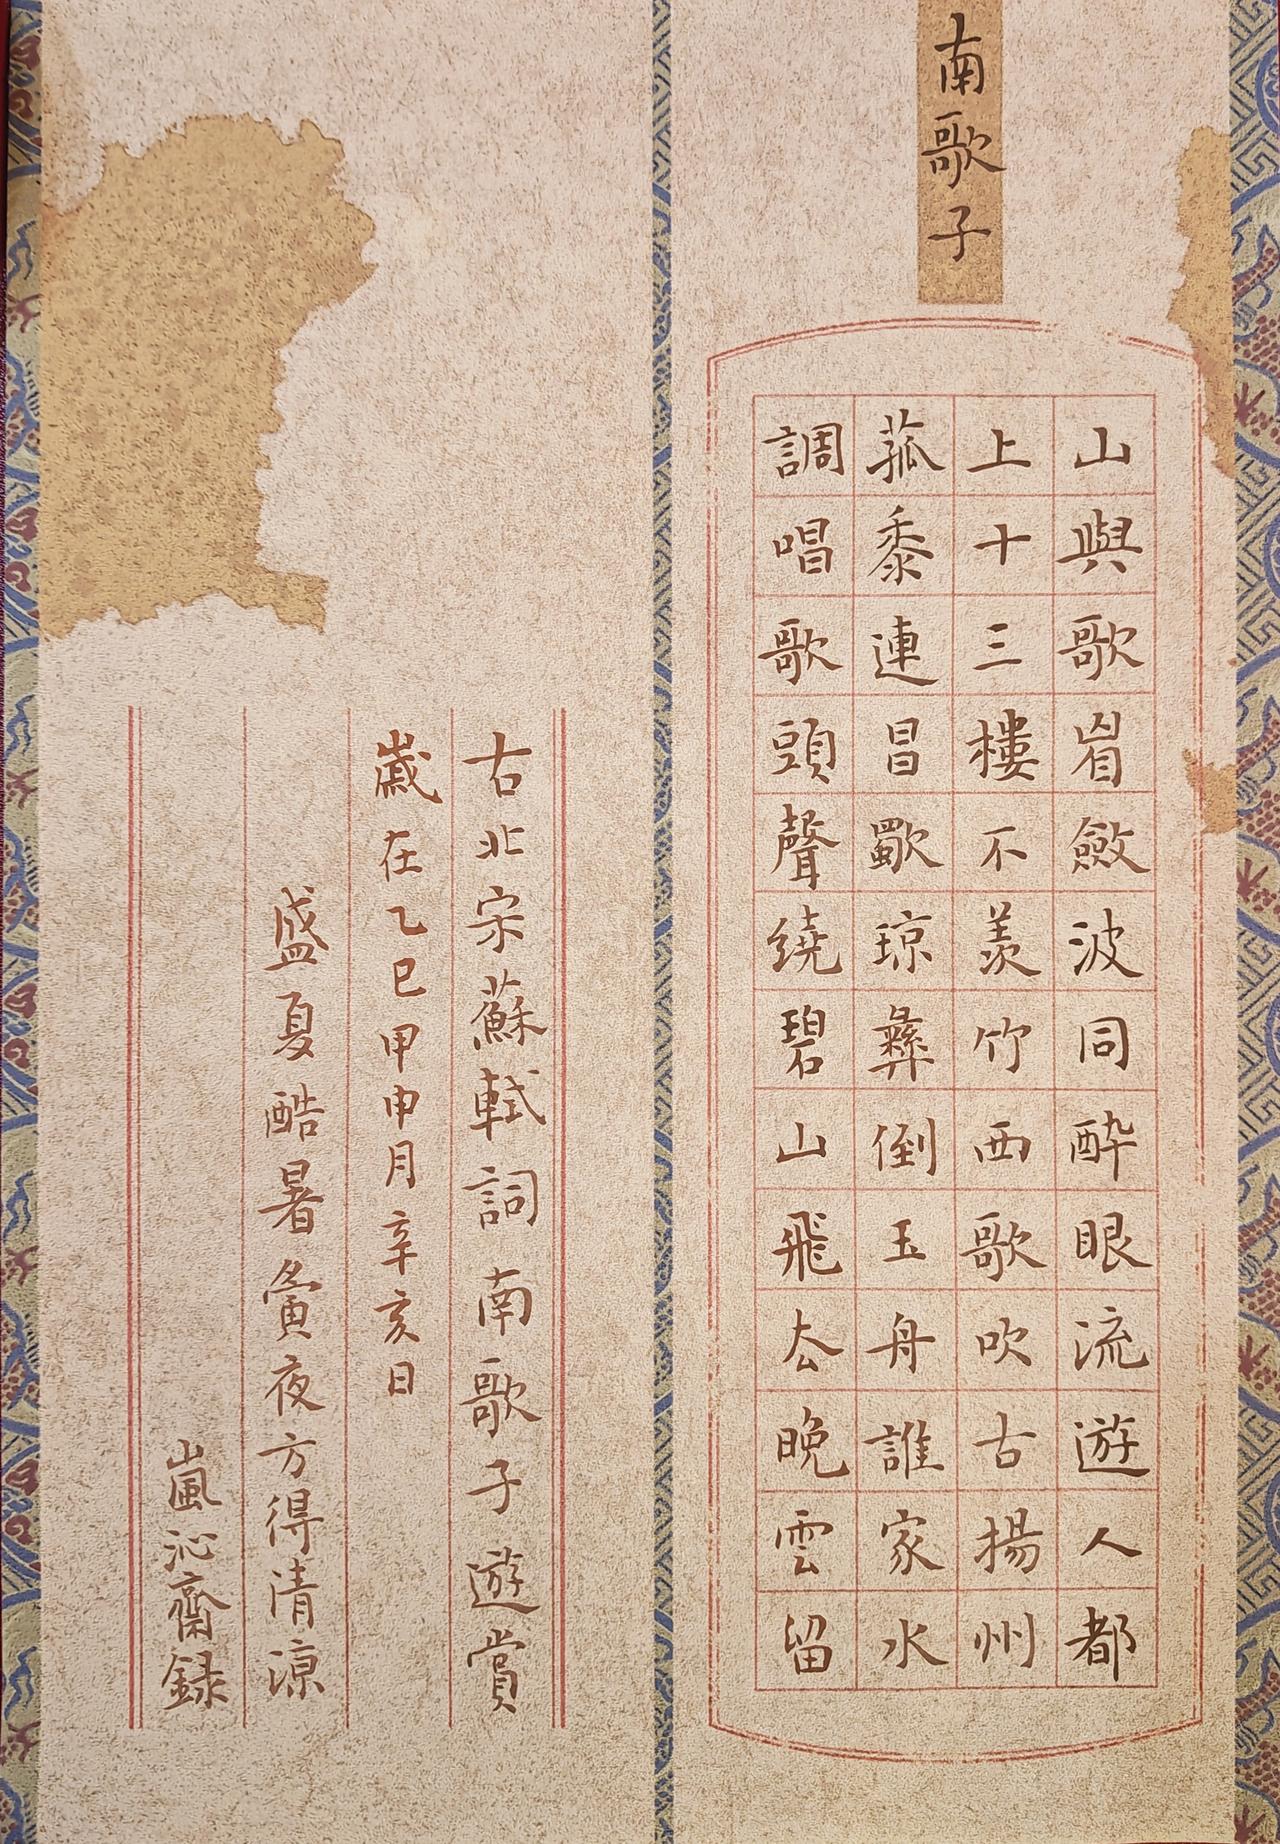 南歌子
山與歌眉斂波同醉眼流遊人都
上十三樓不羨竹西歌吹古揚州
菰黍連昌歜瓊彝倒玉舟誰家水
調唱歌頭聲繞碧山飛去晚雲留
右北宋蘇軾詞南歌子遊賞
歲在乙巳甲申月辛亥日
盛夏酷暑夤夜方得清涼
嵐沁齋録